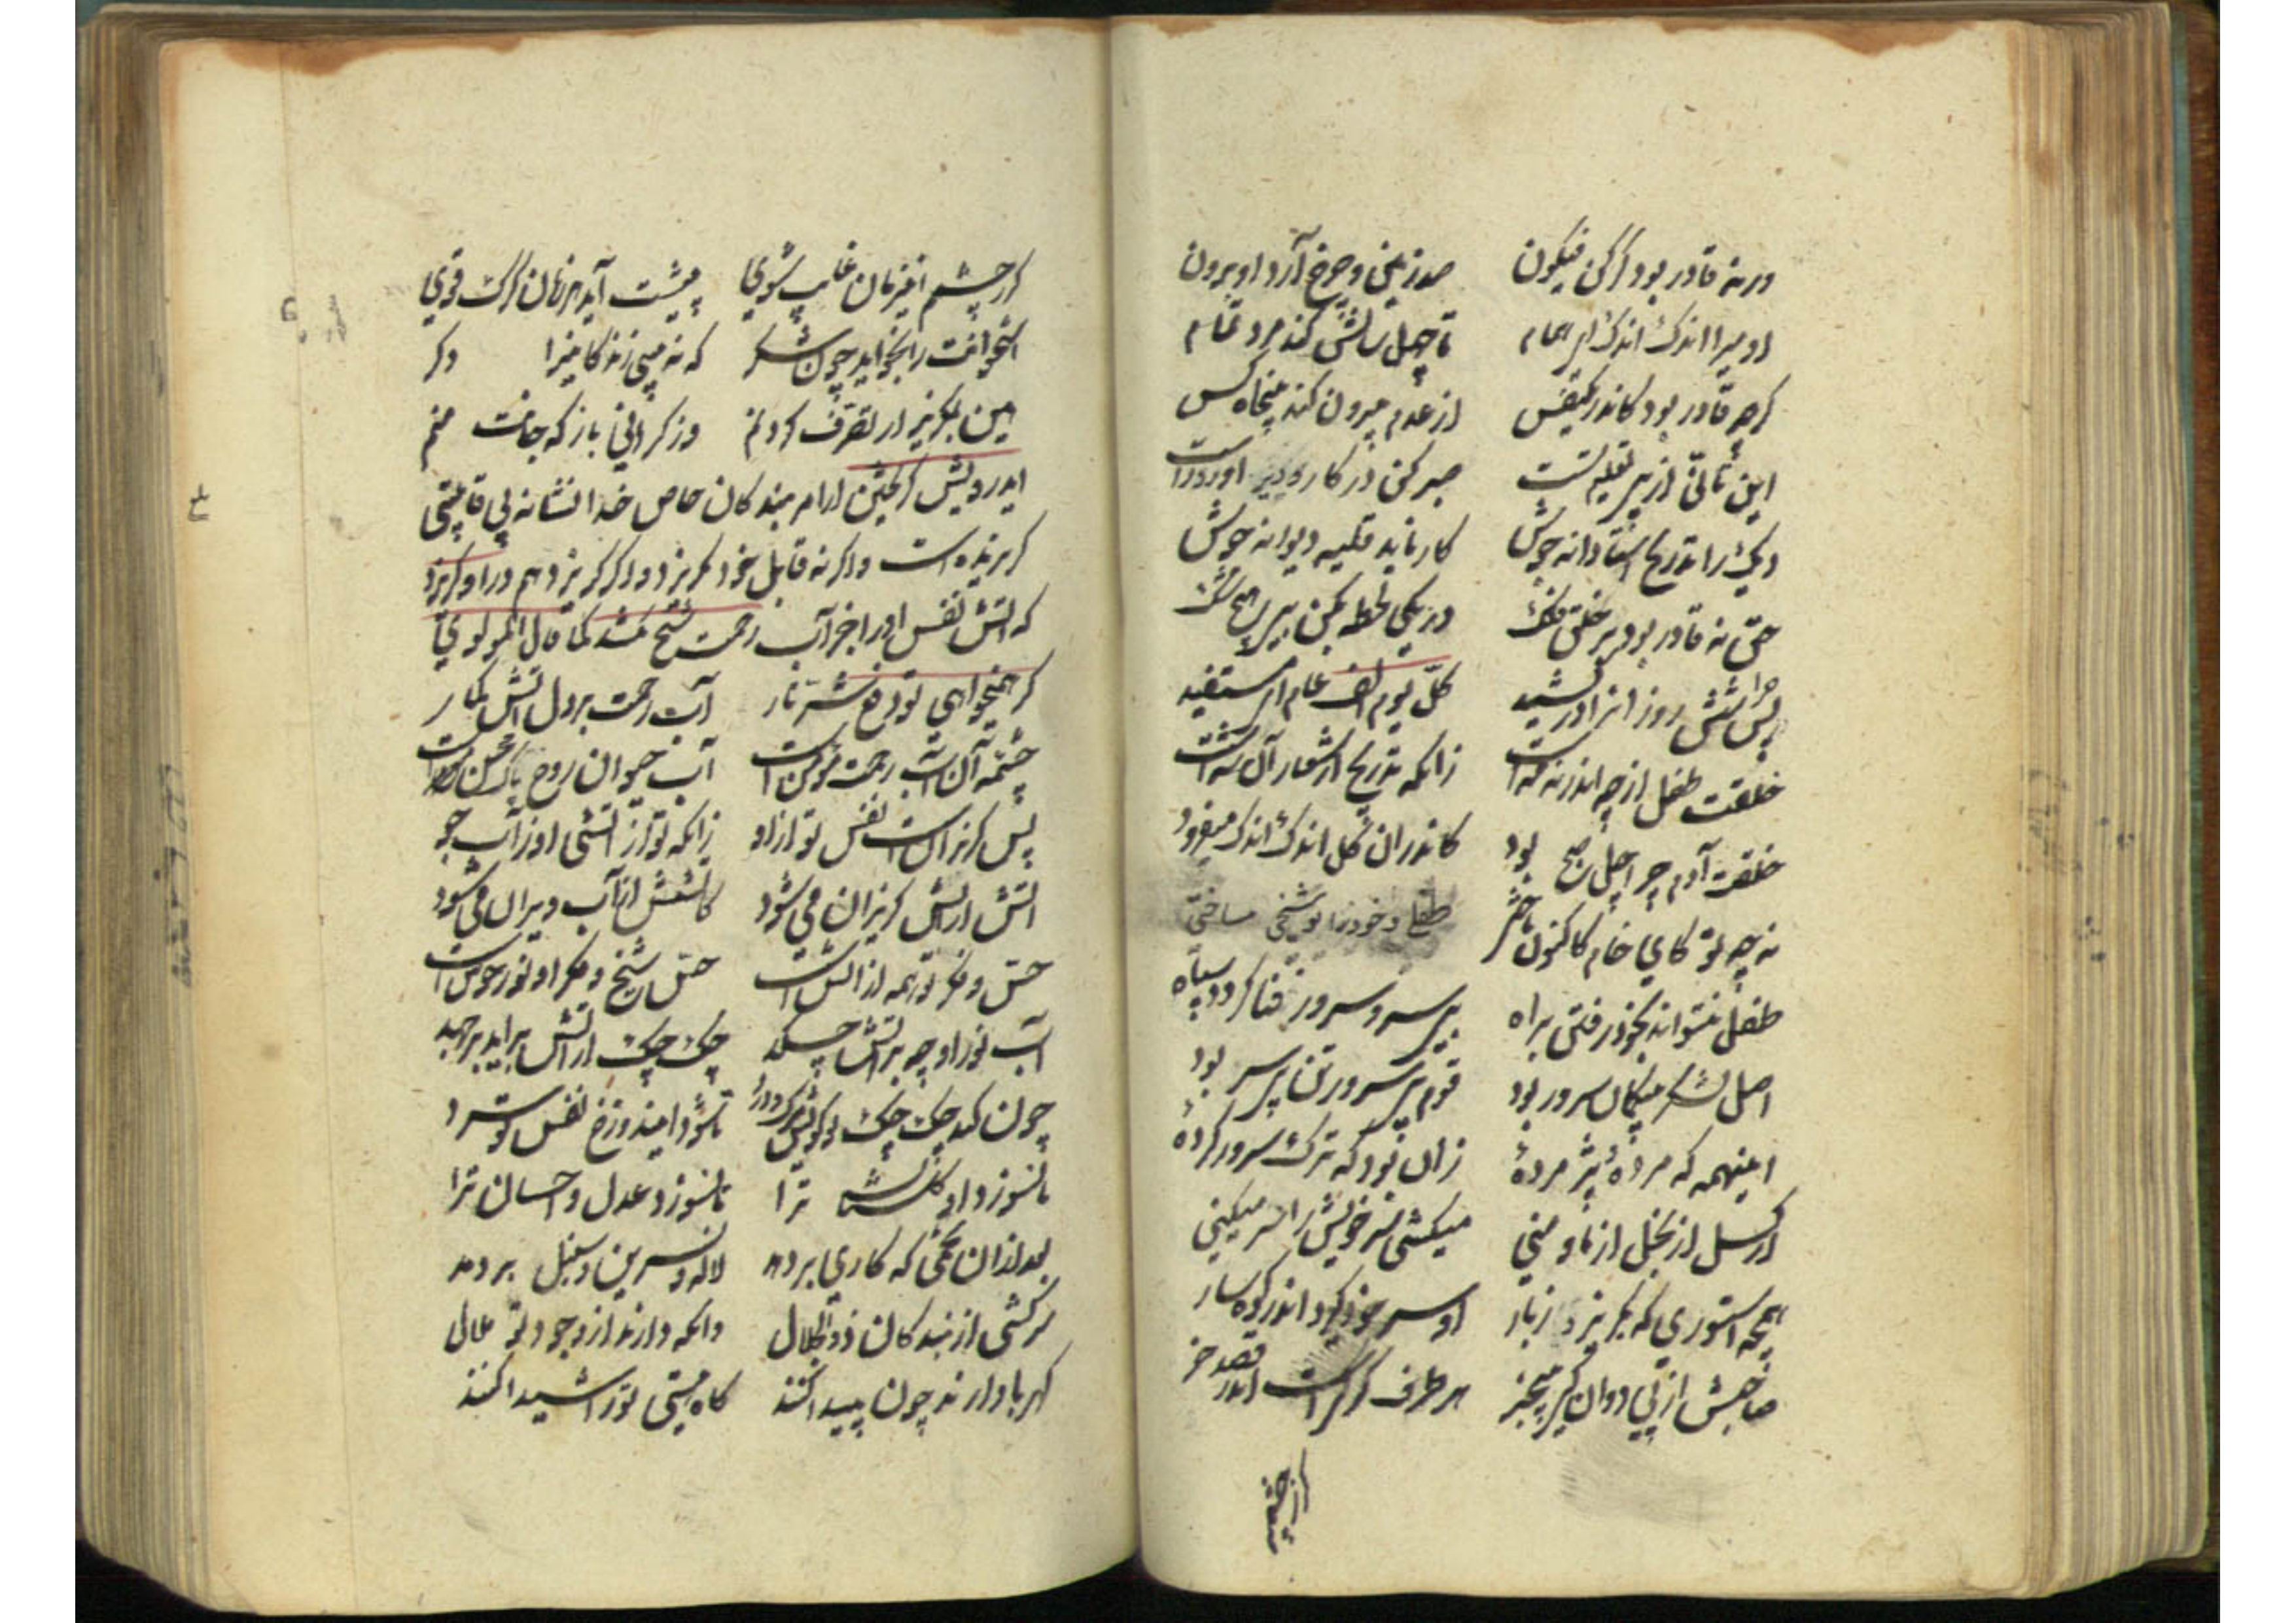 ورنه قادر بود کز کن فیکون صد زمین و چرخ آرد او برون
آدمی را اندک اندک آن همام تا چهل سالش کند مرد تمام
گرچه قادر بود کاندر یکنفس از عدم بیرون کند پنجاه کس
این تأنی از پی تعلیم تست صبر کن در کار دیر او درست
دیک را تدریج استادانه جوش کار ناید قلیه دیوانه جوش
حق نه قادر بود بر خلق فلک در یکی لحظه بکن بی هیچ شک
پس چرا شش روز آنرا در کشید کل یوم الف عام ای مستفید
خلقت طفل از چه اندر نه مه است زانکه تدریج از شعار آن شه است
خلقت آدم چرا چل صبح بود کاندران گل اندک اندک میفزود
نه چو تو ای خام کاکنون تاختی طفلی و خود را تو شیخی ساختی
طفل نتواند بخود رفتی براه بی سر و سرور فنا گردد سپاه
اصل لشکر بیگمان سرور بود قوم بی سرور تن بی سر بود
اینهمه که مرده و پژمرده زان بود که ترک سرور کرده
از کسل از بخل از ما و منی میکشی سر خویش را سر میکنی
همچو استوری که بگریزد زبار او سر خود گیرد اندر کوهسار
صاحبش از پی دوان کی خیره سر هر طرف گرگیست اندر قصد خر
کر زچشم
کر ز چشم این زمان غایب شوی پیشت آید هر زمان گرگ قوی
استخوانت را بخواید چون شکر که نه بینی زندگانی را دگر
هین بمگریز از تصرف کردنم وز گرانی باز که جانت منم
ای درویش گریختن از امر بندگان خاص خدا نشانه بی قابلیتی
گریزنده است واگر نه قابل خود نگریزد و اگر گریزد هم در او گریزد
که آتش نفس او را جز آب رحمت شیخ نکشد کما قال المولوی
گر همیخواهی تو دفع شر نار آب رحمت بر دل آتش گمار
چشمه آن آب رحمت مومن است آب حیوان روح پاک محسن است
پس گریزان است نفس تو ازو زانکه تو از آتشی او ز آب جو
آتش از آتش گریزان می شود کاتشش از آب ویران می شود
حس و فکر تو همه از آتش است حس شیخ و فکر او نور خوش است
آب نور او چو بر آتش چکد چک چک از آتش برآید برجهد
چون کند چک چک تو گویش مرگ و درد تا شود این دوزخ نفس تو سرد
تا نسوزد او گلستان ترا تا نسوزد عدل و احسان ترا
بعد ازان تخمی که کاری بر دهد لاله و نسرین و سنبل بر دهد
سرکشی از بندگان ذوالجلال وانکه دارند از وجود تو ملال
کهربا دارند چون پیدا کنند کاه هستی تو را شیدا کنند